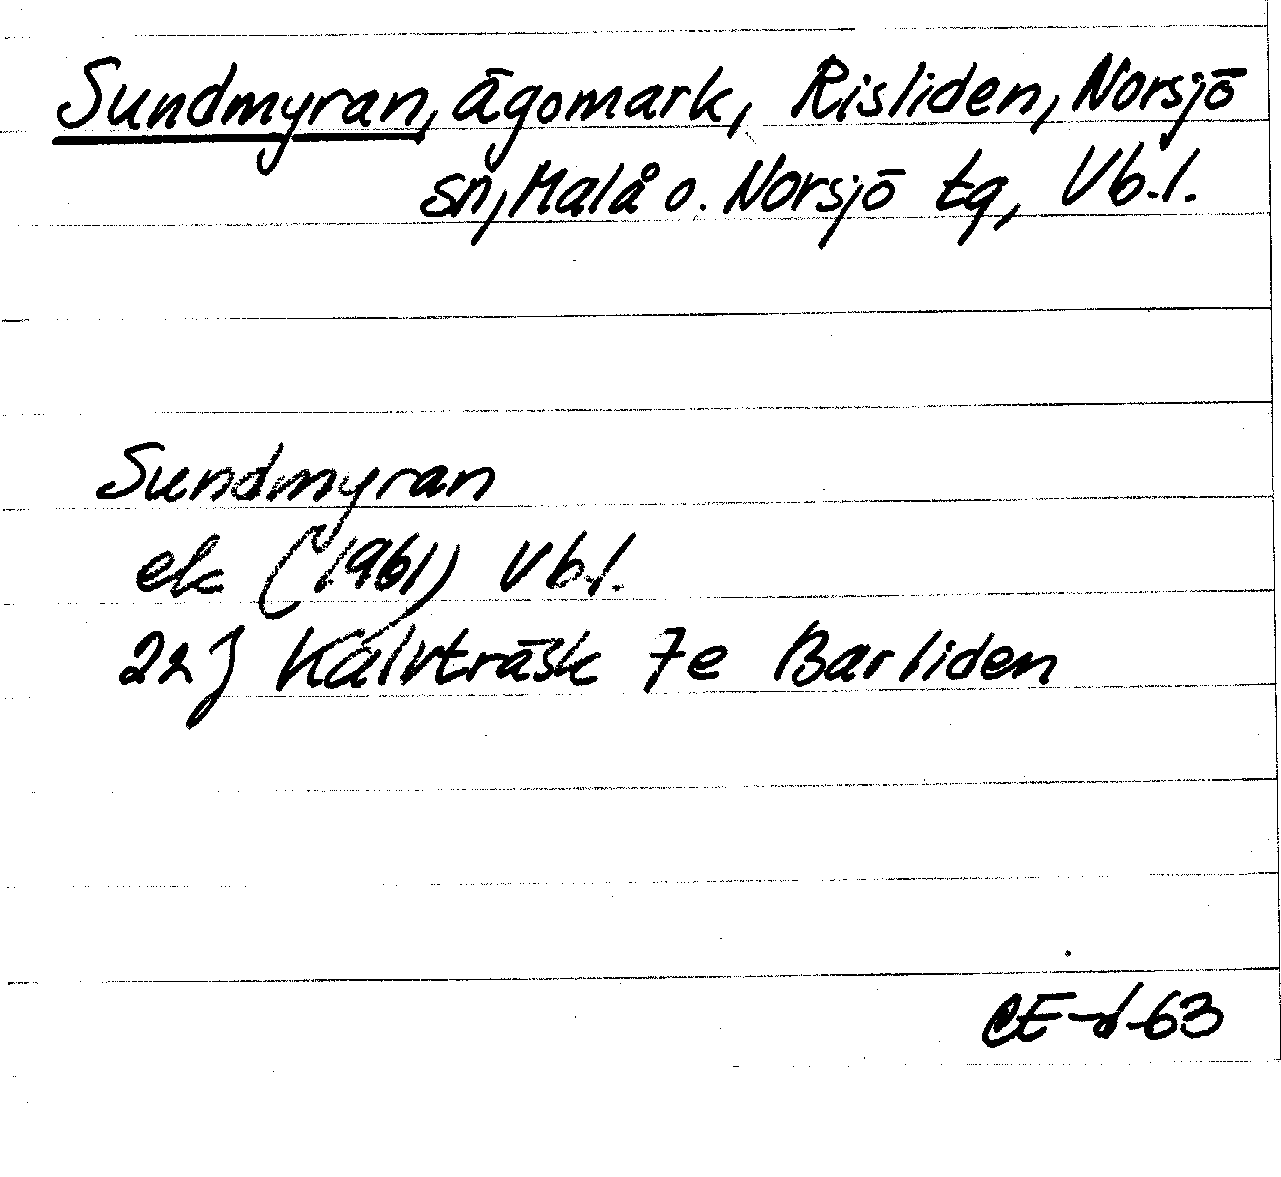 Sundmyran, ägomark, Risliden, Norsjö
sn, Malå o. Norsjö tg, Vb.l.
Sundmyran
ek (1961) Vb.l.
22J Kalvträsk 7e Barliden
CE-d-63